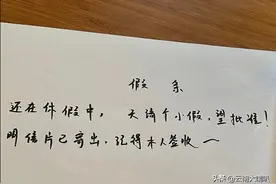 假条
还在休假中，天请个小假，望批准！
明信片已寄出，记得本人签收～
头条 @云南大喇叭